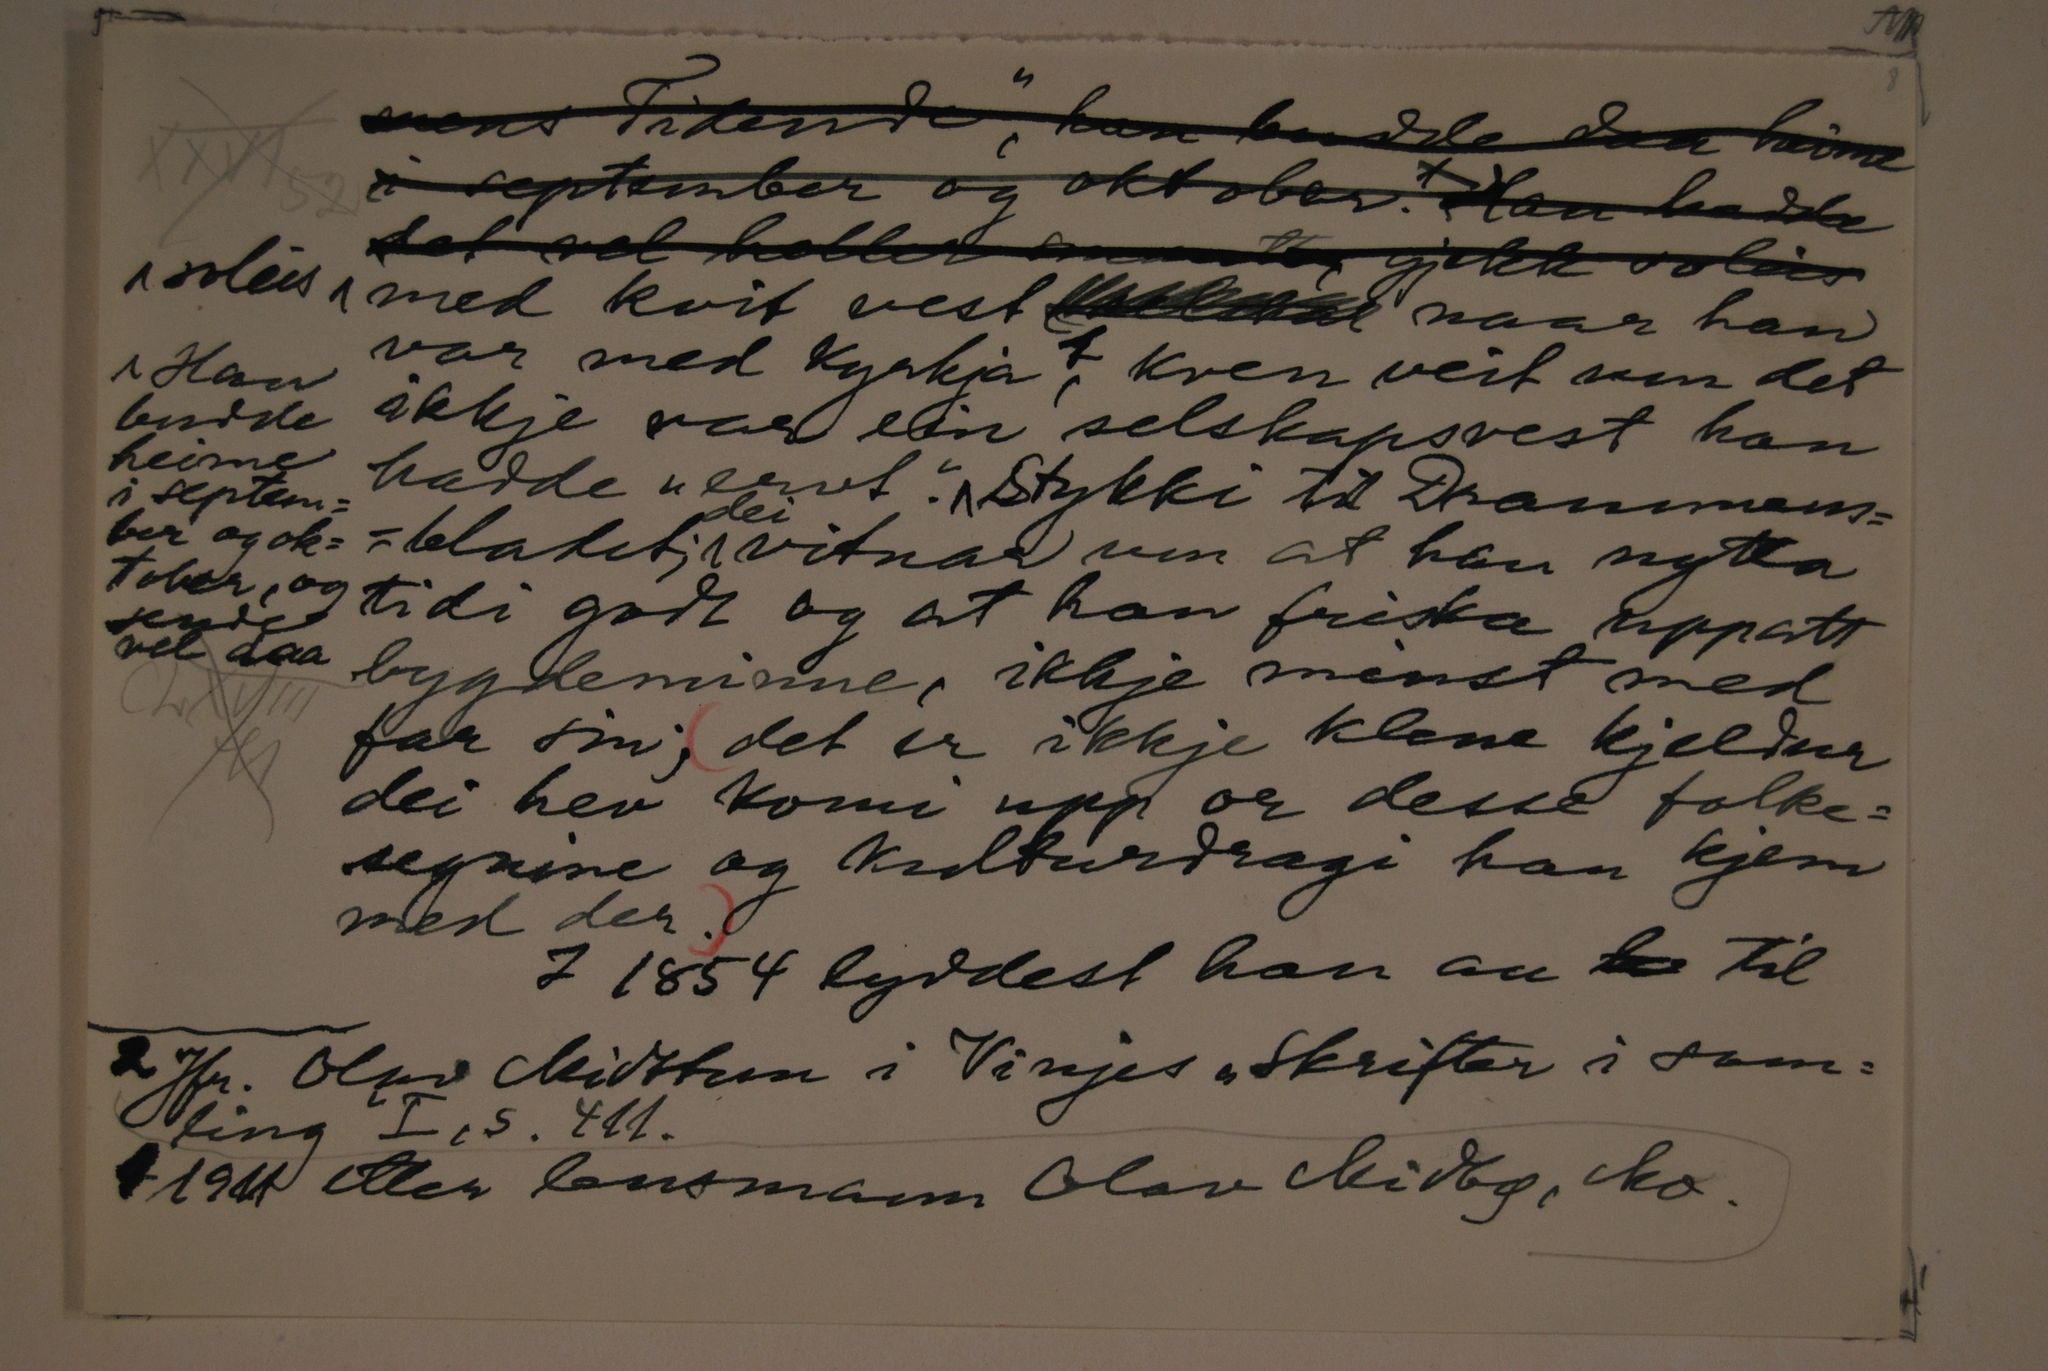 mens Tidende", han budde daa heime
i september og oktober. Han hadde
det vel heller smaatt, gjekk soleis
soleis
med kvit vest naar han
var med kyrkja, kven veit um det
ikkje var ein selskapsvest han
hadde "ervt". Stykki til Drammens=
=bladet; dei vitnar um at han nytta
tidi godt og at han friska uppatt
bygdeminne, ikkje minst med
far sin; (det er ikkje klene kjeldur
dei hev komi upp or desse folke=
segnine og kulturdragi han kjem
med der.)
I 1854 lyddest han au til
Han
budde
heime
i septem=
ber og ok=
tober, og
sende
vel daa
2 Jfr. Olav Midttun i Vinjes "Skrifter i sam=
ling I, s. 411.
1 1911 etter lensmann Olav Midbø, Mo.
XXVII 52
CLXVIII
8